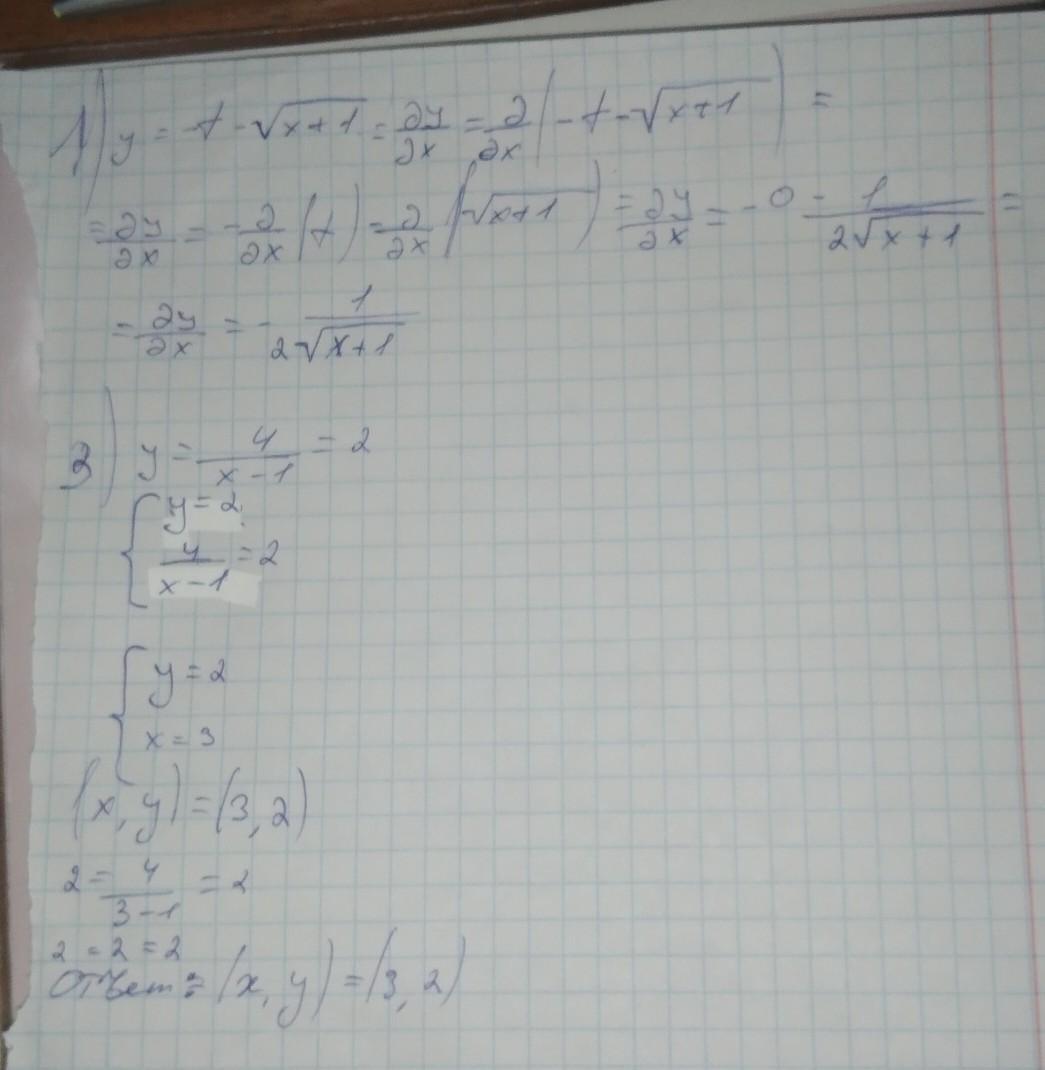 1) y = -t - √(x+1) = ∂y/∂x = ∂/∂x (-t - √(x+1)) =
= ∂y/∂x = -∂/∂x (t) = ∂/∂x (√(x+1)) = ∂y/∂x = -0 - 1/(2√(x+1)) =
= ∂y/∂x = - 1/(2√(x+1))
2) y = 4/(x-1) = 2
{ y = 2
4/(x-1) = 2
{ y = 2
x = 3
(x, y) = (3, 2)
2 = 4/(3-1) = 2
2 = 2 = 2
Ответ: (x, y) = (3, 2)